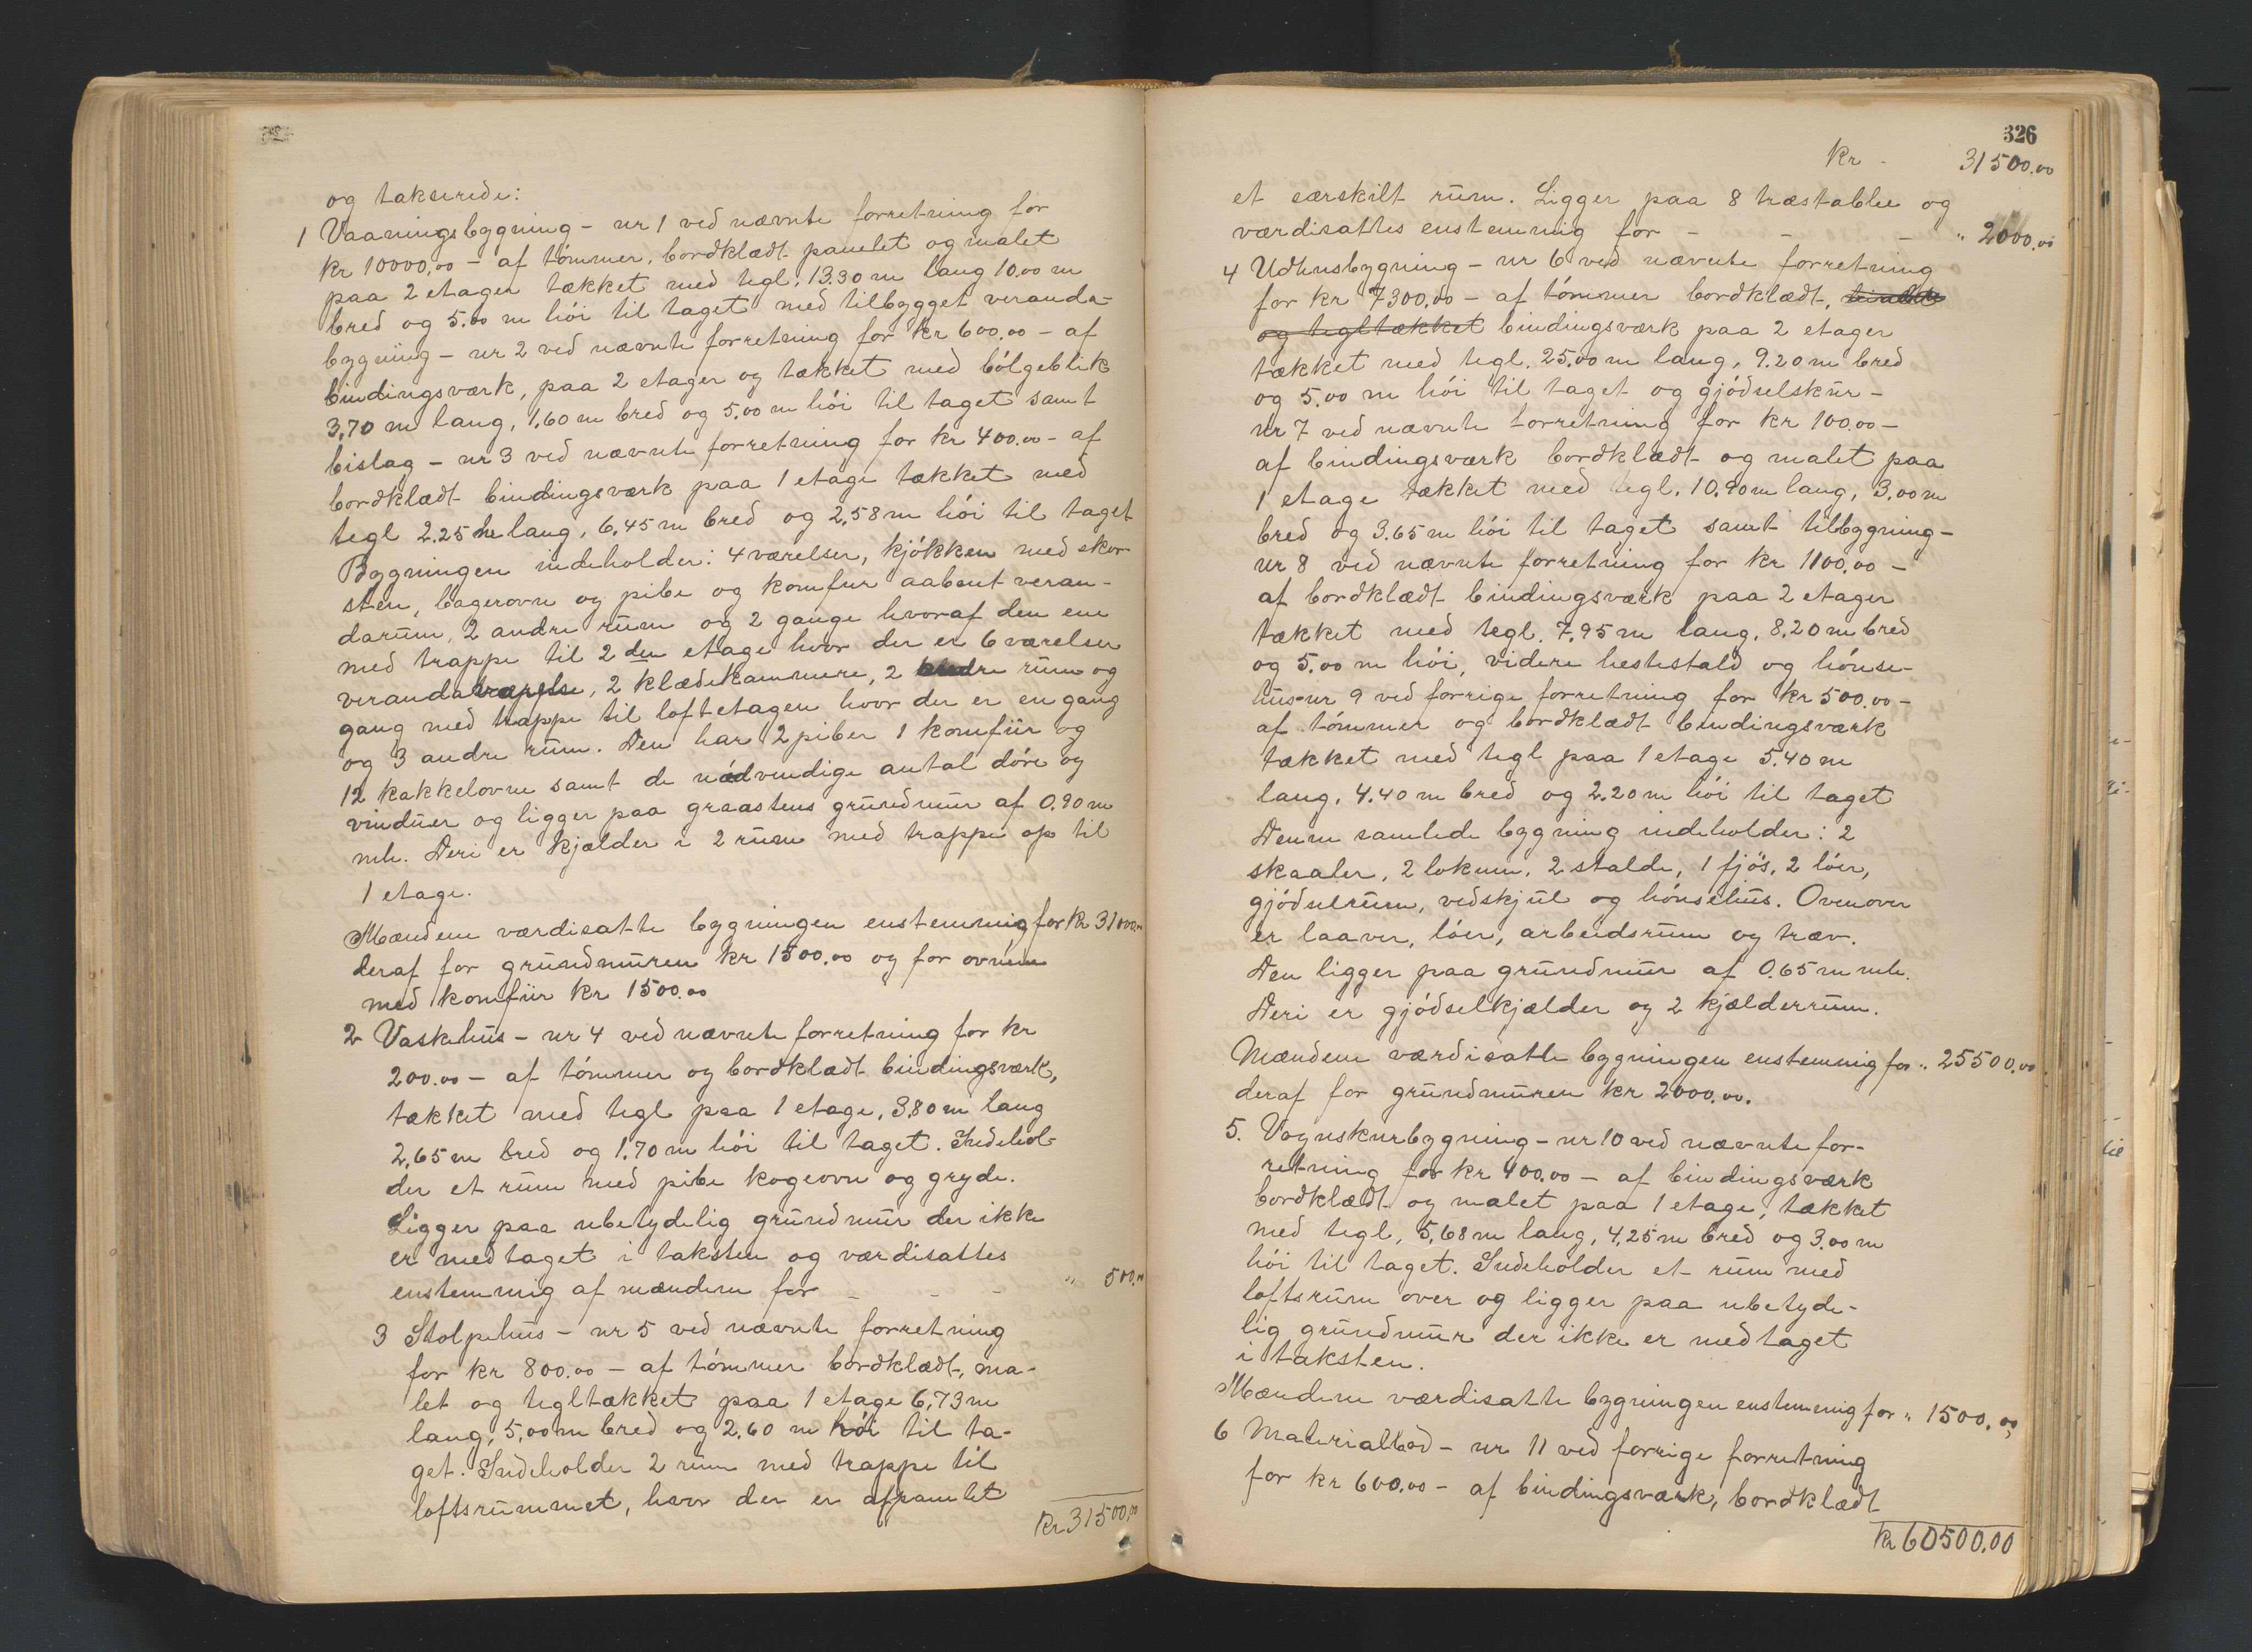 og takserede:
1 Vaaningsbygning - nr 1 ved nævnte forretning for
kr 10000.00 - af tömmer, bordklædt panelet og malet
paa 2 etager tækket med tegl, 13.30 m lang 10.00 m
bred og 5.00 m höi til taget med tilbygget veranda-
bygning - nr 2 ved nævnte forretning for kr 600.00 - af
bindingsværk, paa 2 etager og tækket med bölgeblik
3,70 m lang, 1,60 m bred og 5.00 m höi til taget samt
bislag - nr 3 ved nævnte forretning for kr 400.00 - af
bordklædt bindingsværk paa 1 etage tækket med
tegl 2.25 m lang, 6,45 m bred og 2,58 m höi til taget
Bygningen indeholder: 4 værelser, kjökken med skor-
sten, bagerovn og pibe og komfur aabent veran-
darum, 2 andre rum og 2 gange hvoraf den ene
med trappe til 2 den etage hvor der er 6 værelser
verandaværelse, 2 klædekammere, 2 andre rum og
gang med trappe til loftetagen hvor der er en gang
og 3 andre rum. Den har 2 piber 1 komfür og
12 kakkelovne samt de nödvendige antal döre og
vinduer og ligger paa graastens grundmur af 0.90 m
mh. Deri er kjælder i 2 rum med trappe op til
1 etage.
Mændene værdisatte bygningen enstemmig for kr 31000.00
deraf for grundmuren kr 1500.00 og for ovnene
med komfür kr 1500.00
2 Vaskehus - nr 4 ved nævnte forretning for kr
200.00 - af tömmer og bordklædt bindingsværk,
tækket med tegl paa 1 etage, 3.80 m lang
2,65 m bred og 1.70 m höi til taget. Indehol-
der et rum med pibe kogeovn og gryde.
Ligger paa ubetydelig grundmur der ikke
er medtaget i taksten og værdisattes
enstemmig af mændene for - - - " 500.00
3 Stolpehus - nr 5 ved nævnte forretning
for kr 800.00 - af tömmer bordklædt, ma-
let og tegltækket paa 1 etage 6,73 m
lang, 5,00 m bred og 2.60 m höi til ta-
get. Indeholder 2 rum med trappe til
loftsrummet, hvor der er afpanelet
kr 31500.00
326
kr - 31500.00
et særskilt rum. Ligger paa 8 træstabber og
værdisattes enstemmig for - - - " 2000.00
4 Udhusbygning - nr 6 ved nævnte forretning
for kr 7300.00 - af tömmer bordklædt,
og tegltækket bindingsværk paa 2 etager
tækket med tegl. 25.00 m lang, 9.20 m bred
og 5.00 m höi til taget og gjödselskur -
nr 7 ved nævnte forretning for kr 100.00 -
af bindingsværk bordklædt og malet paa
1 etage tækket med tegl. 10.90 m lang, 3,00 m
bred og 3.65 m höi til taget samt tilbygning -
nr 8 ved nævnte forretning for kr 1100.00 -
af bordklædt bindingsværk paa 2 etager
tækket med tegl. 7.95 m lang, 8,20 m bred
og 5.00 m höi, videre hestestald og hönse-
hus - nr 9 ved forrige forretning for kr 500.00 -
af tömmer og bordklædt bindingsværk
tækket med tegl paa 1 etage 5.40 m
lang, 4.40 m bred og 2.20 m höi til taget
Denne samlede bygning indeholder: 2
skaaler, 2 lokum, 2 stalde, 1 fjös, 2 löer,
gjödselrum, vedskjul og hönsehus. Ovenover
er laaver, löer, arbeidsrum og træv.
Den ligger paa grundmur af 0.65 m mh.
Deri er gjödselkjælder og 2 kjælderrum.
Mændene værdisatte bygningen enstemmig for " 25500.00
deraf for grundmuren kr 2000.00.
5. Vognskurbygning - nr 10 ved nævnte for-
retning for kr 400.00 - af bindingsværk
bordklædt og malet paa 1 etage, tækket
med tegl, 5,68 m lang, 4,25 m bred og 3.00 m
höi til taget. Indeholder et rum med
loftsrum over og ligger paa ubetyde-
lig grundmur der ikke er medtaget
i taksten.
Mændene værdisatte bygningen enstemmig for " 1500.00
6 Materialbod - nr 11 ved forrige forretning
for kr 600.00 - af bindingsværk, bordklædt
kr 60500.00